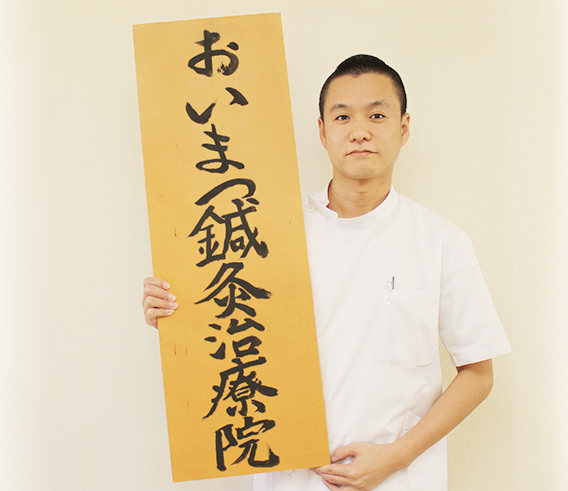 おいまつ鍼灸治療院